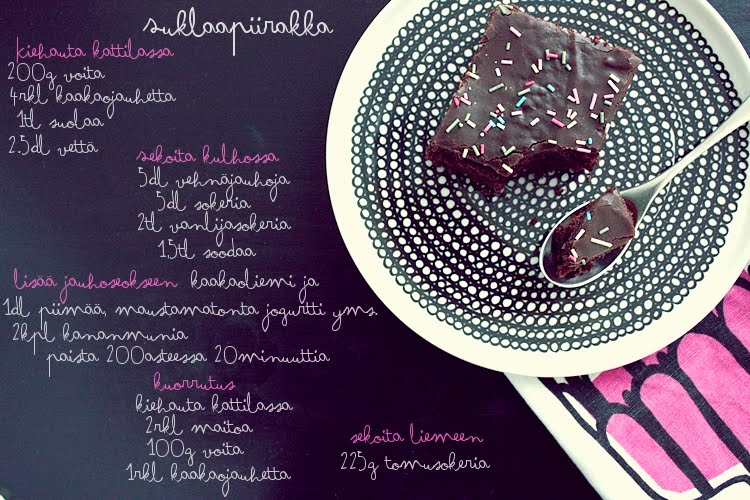 suklaapiirakka
kiehauta kattilassa
200g voita
4rkl kaakaojauhetta
1tl suolaa
2.5dl vettä
sekoita kulhossa
5dl vehnäjauhoja
5dl sokeria
2tl vanlijasokeria
1,5tl soodaa
lisää jauhoseokseen kaakaoliemi ja
1dl piimää, maustamatonta jogurtti yms.
2kpl kananmunia
paista 200asteessa 20minuuttia
kuorrutus
kiehauta kattilassa
2rkl maitoa
100g voita
1rkl kaakaojauhetta
sekoita liemeen
225g tomusokeria